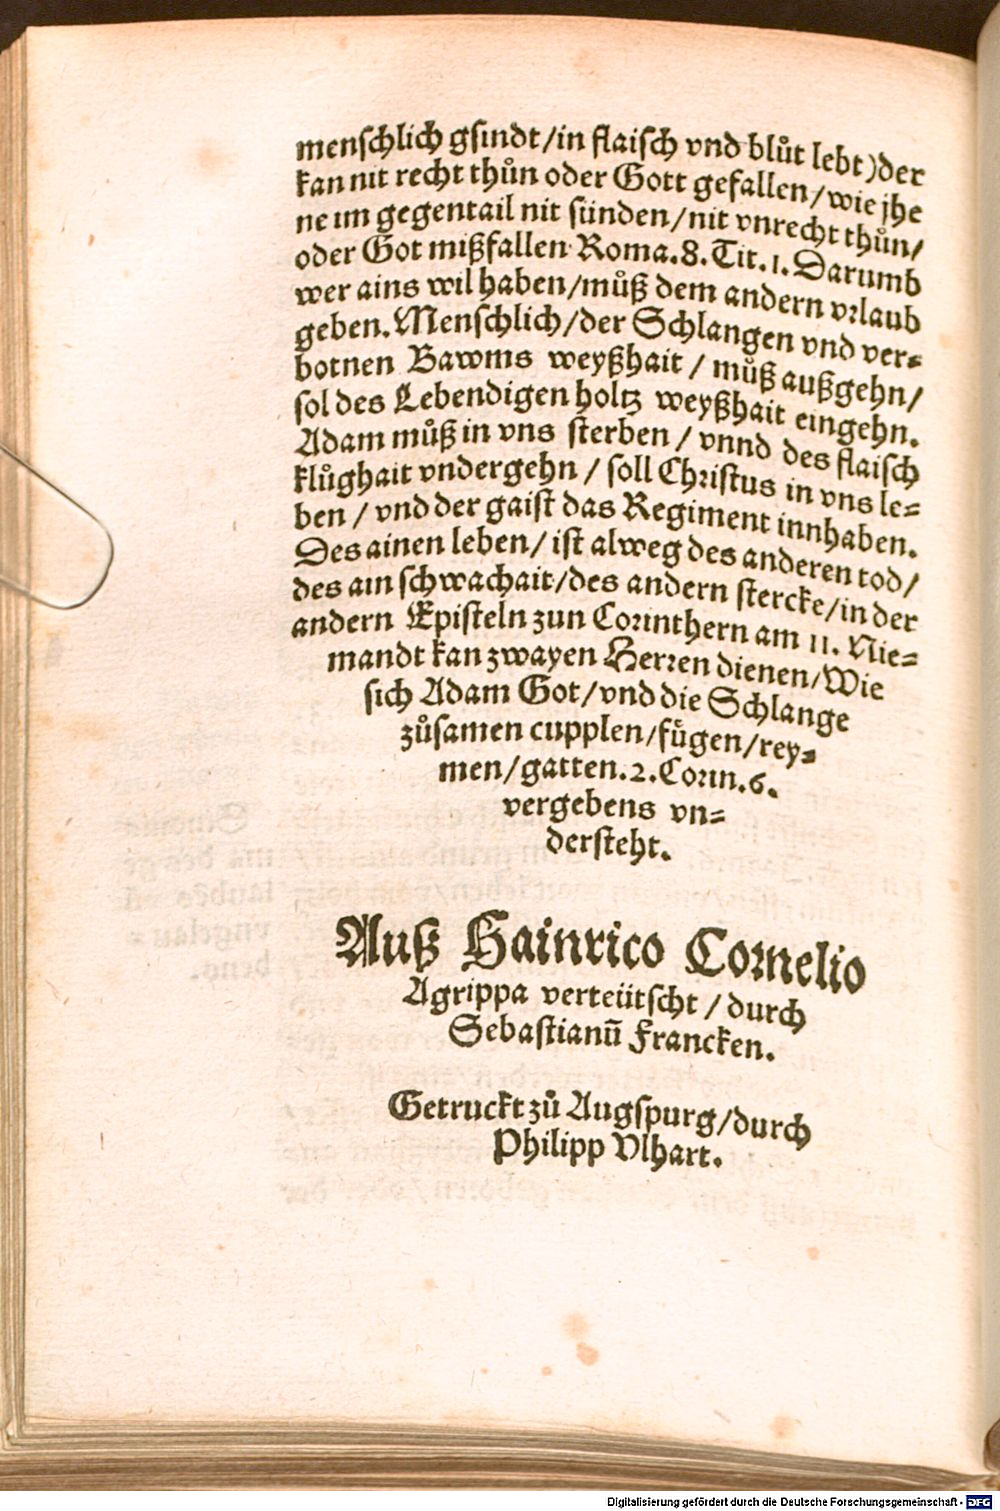 menschlich gsindt/in flaisch vnd blůt lebt) der
kan nit recht thůn oder Gott gefallen/wie jhe
ne im gegentail nit sünden/nit vnrecht thůn/
oder Got mißfallen Roma.8. Tit.1. Darumb
wer ains wil haben/můß dem andern vrlaub
geben. Menschlich/der Schlangen vnd ver-
botnen Bawms weyßhait / můß außgehn/
sol des Lebendigen holtz weyßhait eingehn.
Adam můß in vns sterben / vnnd des flaisch
klůghait vndergehn / soll Christus in vns le-
ben / vnd der gaist das Regiment innhaben.
Des ainen leben/ ist alweg des anderen tod/
des ain schwachait/des andern stercke/in der
andern Episteln zun Corinthern am 11. Nie-
mandt kan zwayen Herren dienen/Wie
sich Adam Got/vnd die Schlange
zůsamen cupplen/fůgen/rey-
men/gatten.2.Corin.6.
vergebens vn-
dersteht.
Auß Hainrico Cornelio
Agrippa verteütscht / durch
Sebastianū Francken.
Getruckt zů Augspurg/durch
Philipp Vlhart.
Digitalisierung gefördert durch die Deutsche Forschungsgemeinschaft - DFG